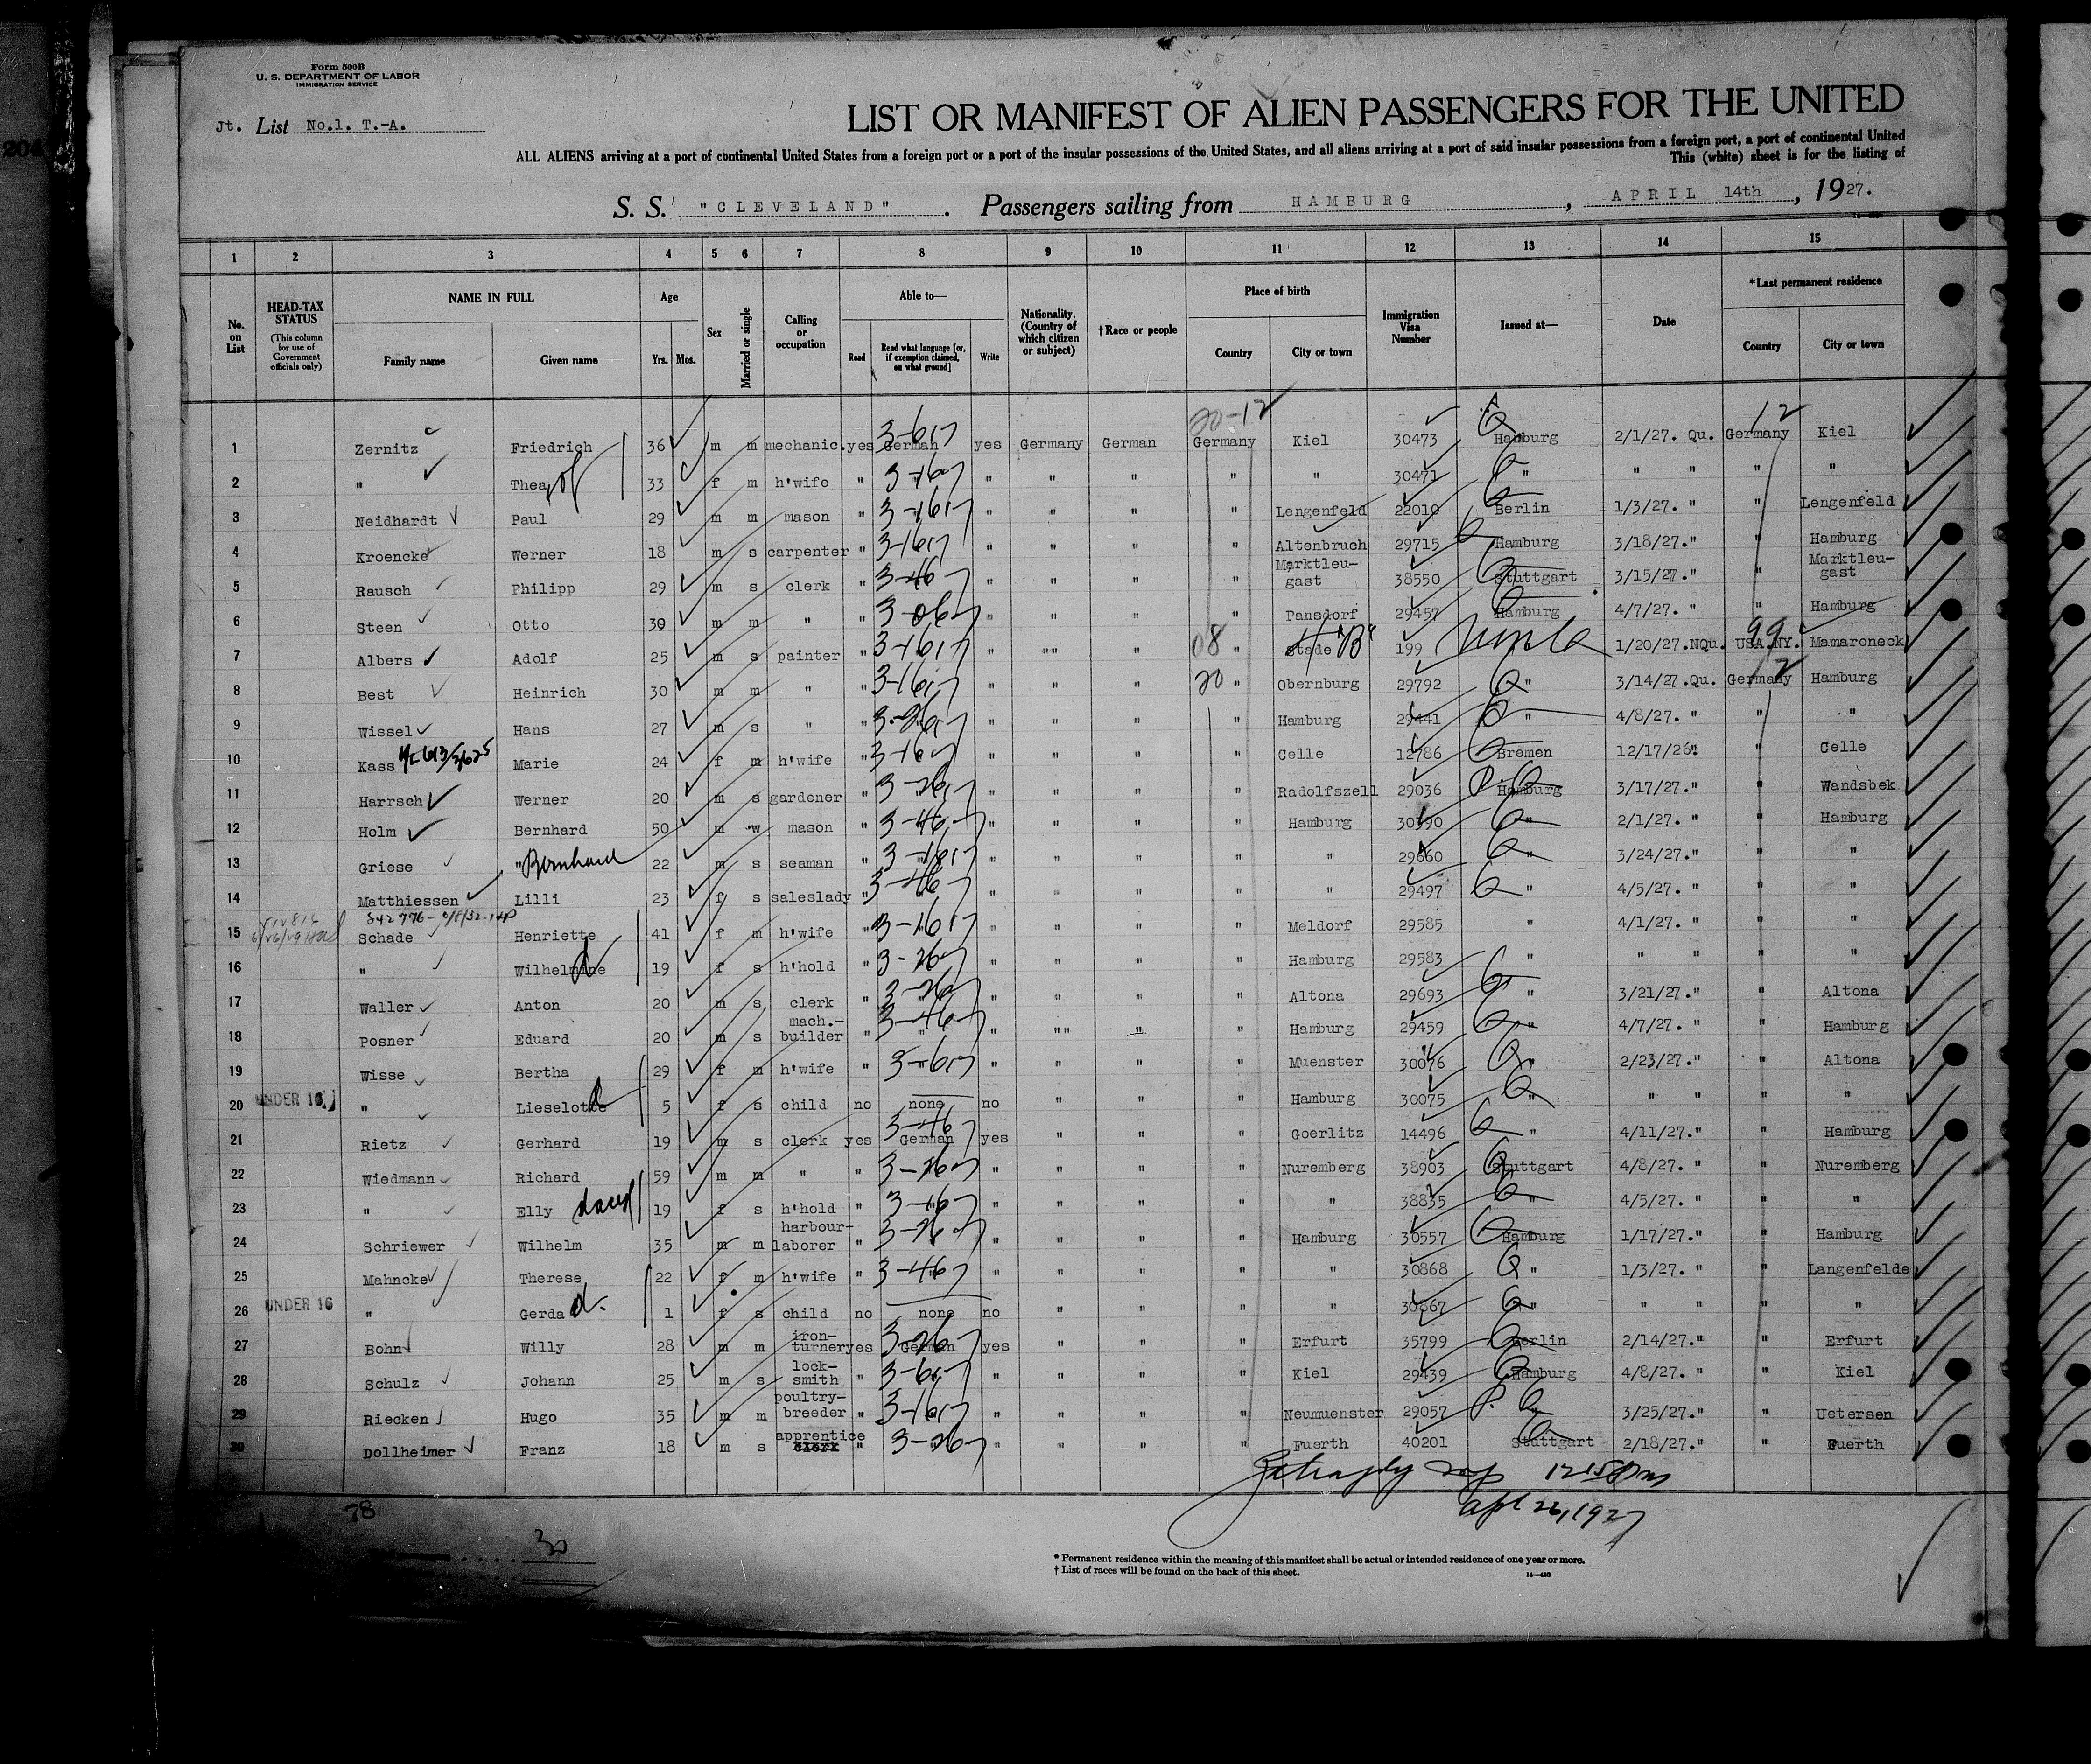 Form 500B
U. S. DEPARTMENT OF LABOR
IMMIGRATION SERVICE
Jt. List No.1. T.-A.
LIST OR MANIFEST OF ALIEN PASSENGERS FOR THE UNITED
ALL ALIENS arriving at a port of continental United States from a foreign port or a port of the insular possessions of the United States, and all aliens arriving at a port of said insular possessions from a foreign port, a port of continental United
This (white) sheet is for the listing of
S. S. "CLEVELAND". Passengers sailing from HAMBURG, APRIL 14th, 1927.
1 2 3 4 5 6 7 8 9 10 11 12 13 14 15
No. on List
HEAD-TAX STATUS (This column for use of Government officials only)
NAME IN FULL
Family name Given name
Age
Yrs. Mos.
Sex
Married or single
Calling or occupation
Able to—
Read Read what language [or, if exemption claimed, on what ground] Write
Nationality. (Country of which citizen or subject)
†Race or people
Place of birth
Country City or town
Immigration Visa Number
Issued at—
Date
*Last permanent residence
Country City or town
20-12 12
1 Zernitz Friedrich 36 m m mechanic. yes German yes Germany German Germany Kiel 30473 Hamburg 2/1/27. Qu. Germany Kiel
2 " Thea 33 f m h'wife " " " " " " " 30471 " " " " "
3 Neidhardt Paul 29 m m mason " " " " " " Lengenfeld 22010 Berlin 1/3/27. " " Lengenfeld
4 Kroencke Werner 18 m s carpenter " " " " " " Altenbruch 29715 Hamburg 3/18/27." " Hamburg
5 Rausch Philipp 29 m s clerk " " " " " " Marktleu-gast 38550 Stuttgart 3/15/27." " Marktleu-gast
6 Steen Otto 39 m m " " " " " " " Pansdorf 29457 Hamburg 4/7/27. " " Hamburg
7 Albers Adolf 25 m s painter " " " "" " 08 " Stade "B" 199 1/20/27.NQu. USA.NY. 99 Mamaroneck
8 Best Heinrich 30 m m " " " " " " 20 " Obernburg 29792 " 3/14/27.Qu. Germany Hamburg
9 Wissel Hans 27 m s " " " " " " " Hamburg 29441 " 4/8/27. " " "
10 Kass Marie 24 f m h'wife " " " " " " Celle 12786 Bremen 12/17/26" " Celle
11 Harrsch Werner 20 m s gardener " " " " " " Radolfszell 29036 Hamburg 3/17/27." " Wandsbek
12 Holm Bernhard 50 m w mason " " " " " " Hamburg 30390 " 2/1/27. " " Hamburg
13 Griese "Bernhard 22 m s seaman " " " " " " " 29660 " 3/24/27." " "
14 Matthiessen Lilli 23 f s saleslady " " " " " " " 29497 " 4/5/27. " " "
15 Schade Henriette 41 f m h'wife " " " " " " Meldorf 29585 " 4/1/27. " " "
16 " Wilhelmine 19 f s h'hold " " " " " " Hamburg 29583 " " " " "
17 Waller Anton 20 m s clerk " " " " " " Altona 29693 " 3/21/27." " Altona
18 Posner Eduard 20 m s mach.-builder " " " "" " " Hamburg 29459 " 4/7/27. " " Hamburg
19 Wisse Bertha 29 f m h'wife " " " " " Muenster 30076 " 2/23/27." " Altona
20 UNDER 16 " Lieselotte 5 f s child no none no " " " Hamburg 30075 " " " " "
21 Rietz Gerhard 19 m s clerk yes German yes " " " Goerlitz 14496 " 4/11/27." " Hamburg
22 Wiedmann Richard 59 m m " " " " " " " Nuremberg 38903 Stuttgart 4/8/27. " " Nuremberg
23 " Elly 19 f s h'hold " " " " " " " 38835 " 4/5/27. " " "
24 Schriewer Wilhelm 35 m m harbour-laborer " " " " " " Hamburg 30557 Hamburg 1/17/27." " Hamburg
25 Mahncke Therese 22 f m h'wife " " " " " " " 30868 " 1/3/27. " " Langenfelde
26 UNDER 16 " Gerda 1 f s child no none no " " " " 30867 " " " " "
27 Bohn Willy 28 m m iron-turner yes German yes " " " Erfurt 35799 Berlin 2/14/27." " Erfurt
28 Schulz Johann 25 m s lock-smith " " " " " " Kiel 29439 Hamburg 4/8/27. " " Kiel
29 Riecken Hugo 35 m m poultry-breeder " " " " " " Neumuenster 29057 " 3/25/27." " Uetersen
30 Dollheimer Franz 18 m s apprentice clerk " " " " " " Fuerth 40201 Stuttgart 2/18/27." " Fuerth
Apl 26, 1927
78
30
* Permanent residence within the meaning of this manifest shall be actual or intended residence of one year or more.
† List of races will be found on the back of this sheet.